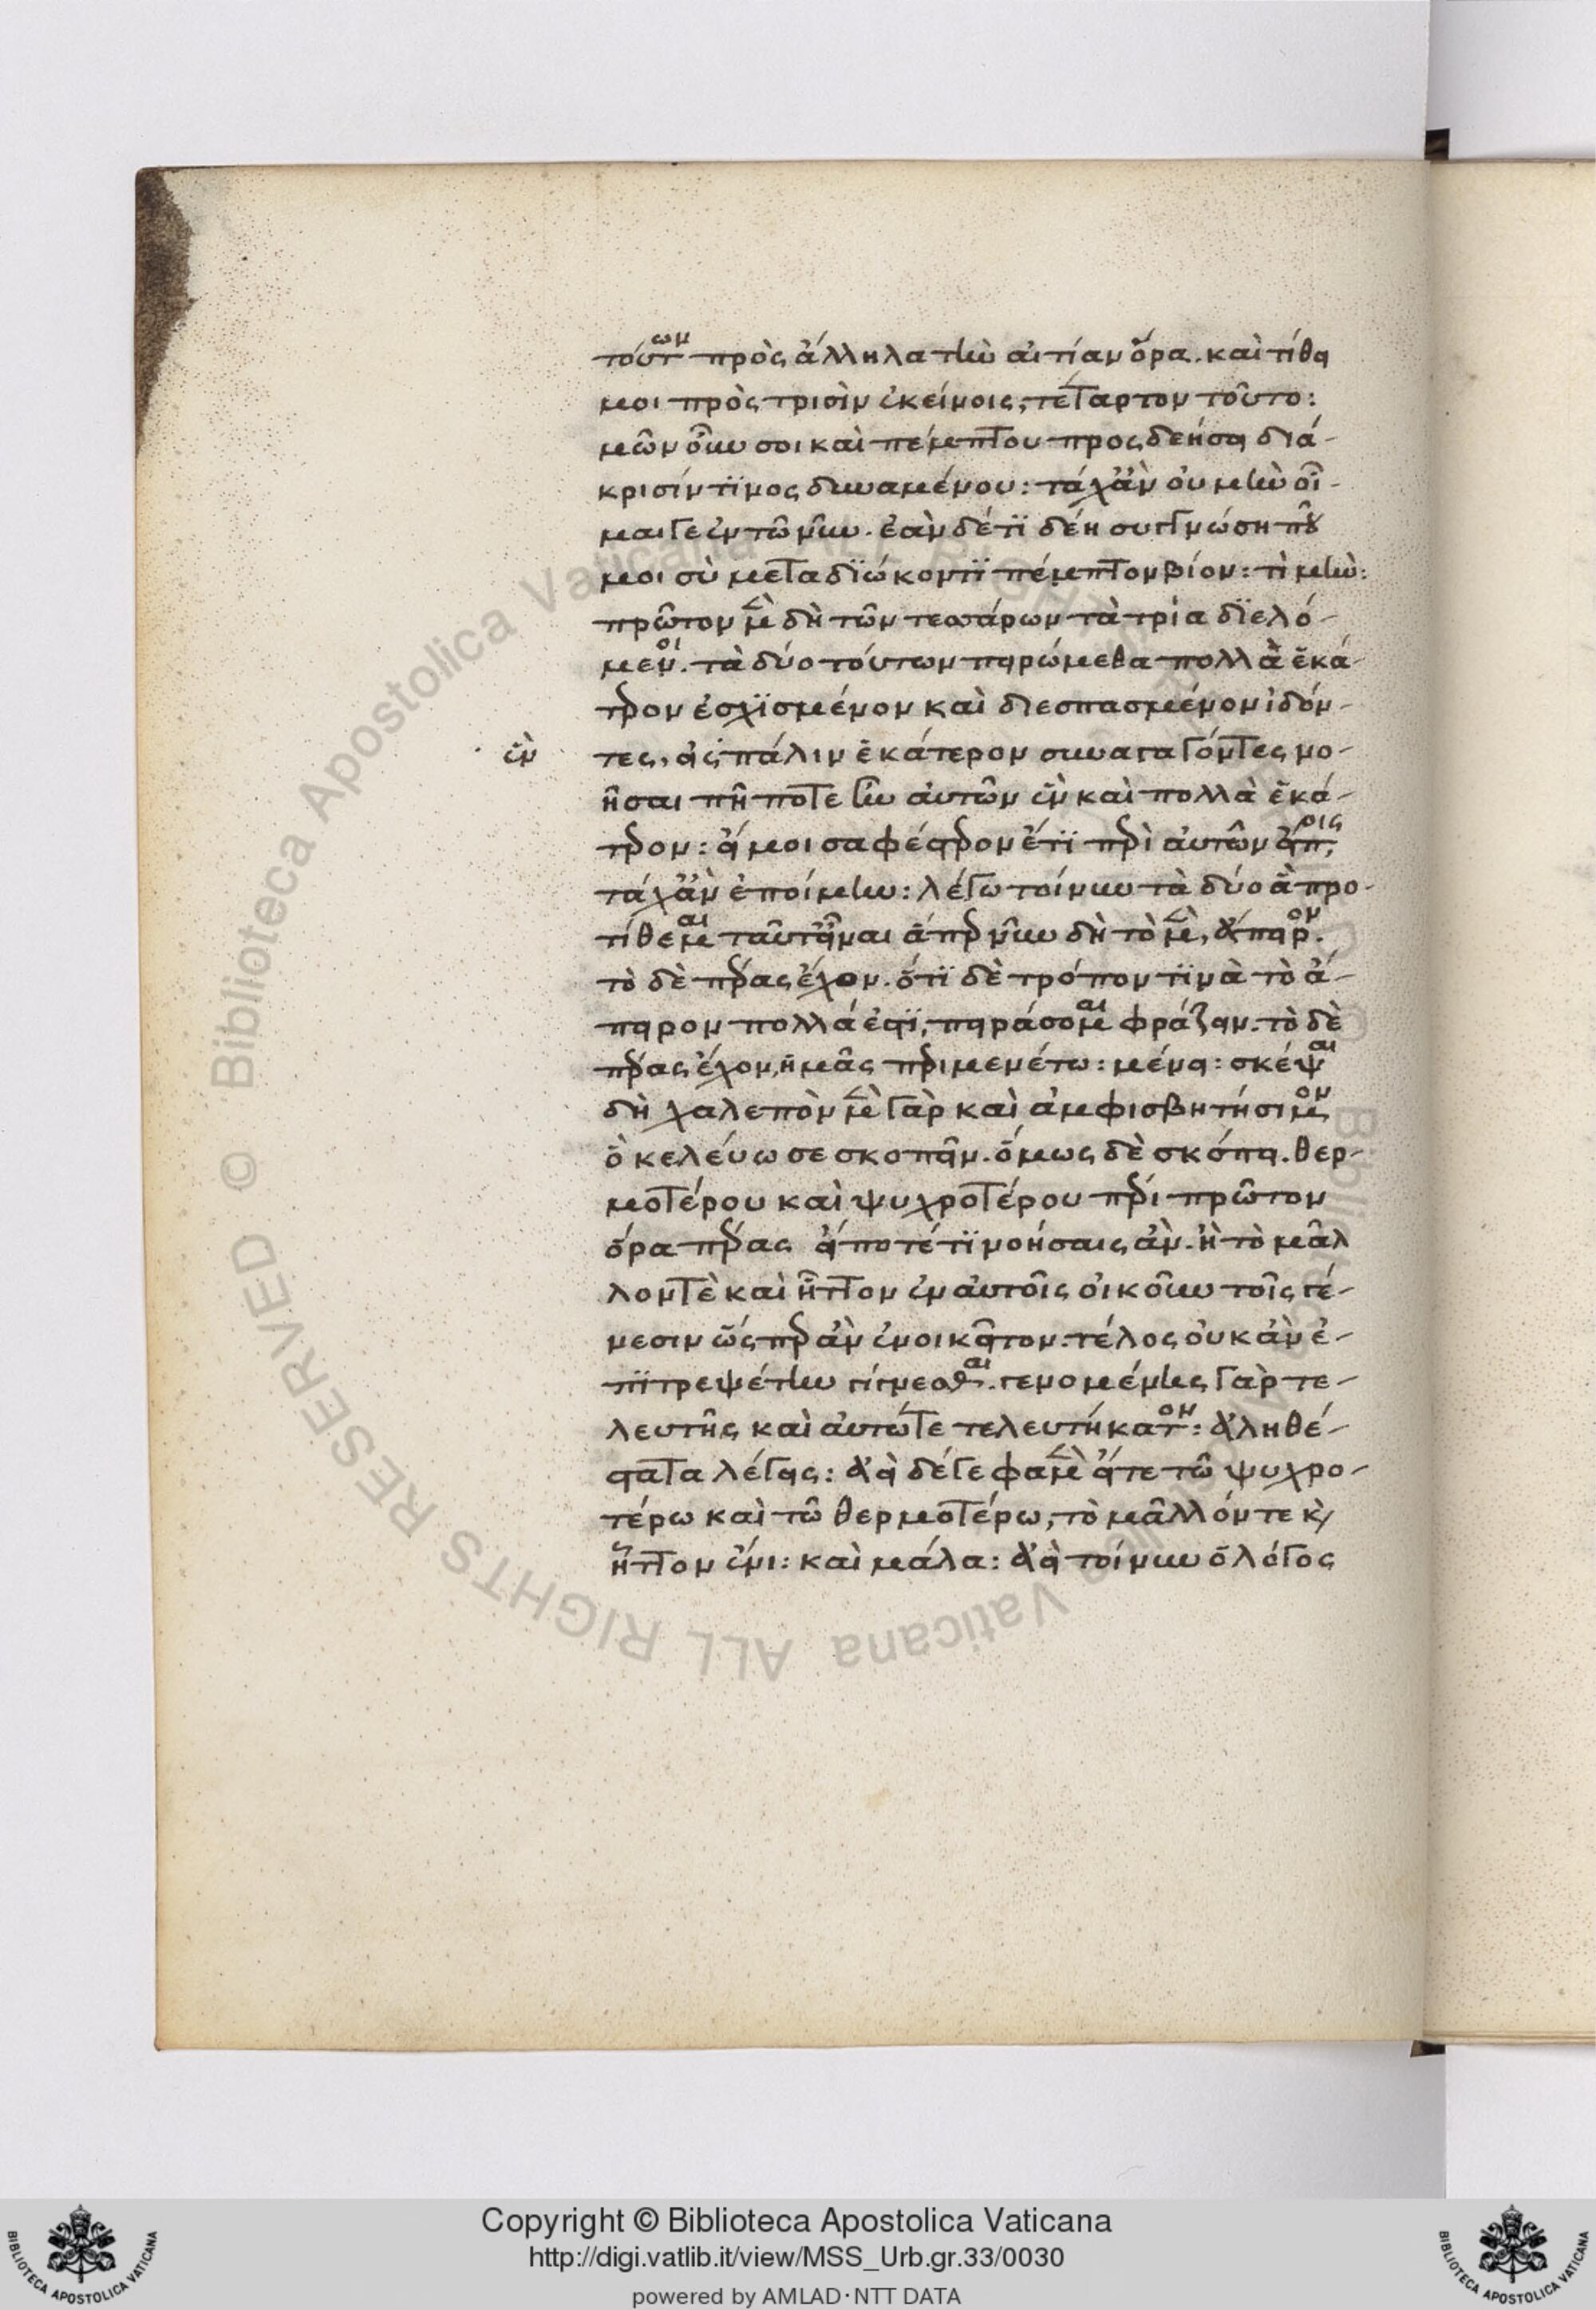 τούτων πρὸς ἄλληλα τὴν αἰτίαν ὅρα. καὶ τίθει
μοι πρὸς τρισὶν ἐκείνοις, τέταρτον τοῦτο:
μῶν οὖν σοι καὶ πέμπτου προςδεήσει διά-
κρισίν τϊνος δυναμένου: τάχἂν οὐ μὴν οἶ-
μαι γε ἐν τῶ νῦν. ἐὰν δέ τϊ δέη συγγνώση που
μοι σὺ μεταδϊώκοντϊ πέμπτον βίον: τὶ μὴν:
πρῶτον μὲν δὴ τῶν τεσσάρων τὰ τρία δϊελό-
μενοι. τὰ δύο τούτων πειρώμεθα πολλὰ ἑκά-
τερον ἐσχϊσμένον καὶ διεσπασμένον ἰδόν-
ἓν
τες, εἰς πάλιν ἑκάτερον συναγαγόντες νο-
ῆσαι πῆ ποτε ἦν αὐτῶν ἓν καὶ πολλὰ ἑκά-
τερον: εἴ μοι σαφέστερον ἔτϊ περὶ αὐτῶν εἴποις,
τάχἂν ἑποίμην: λέγω τοίνυν τὰ δύο ἃ προ-
τίθεμαι ταῦτεἶναι ἅπερ νῦν δὴ τὸ μὲν, ἄπειρον.
τὸ δὲ πέρας ἔχον. ὅτϊ δὲ τρόπον τϊνὰ τὸ ἄ-
πειρον πολλά ἐστϊ, πειράσομαι φράζειν. τὸ δὲ
πέρας ἔχον, ἡμᾶς περιμενέτω: μένει: σκέψαι
δὴ χαλεπὸν μὲν γὰρ καὶ ἀμφισβητήσιμον
ὃ κελεύω σε σκοπεῖν. ὅμως δὲ σκόπει. θερ-
μοτέρου καὶ ψυχροτέρου πέρι πρῶτον
ὅρα πέρας εἴ ποτέ τϊ νοήσαις ἂν. ἢ τὸ μᾶλ
λοντὲ καὶ ἧττον ἐν αὐτοῖς οἰκοῦν τοῖς γέ-
νεσιν ὥς περ ἂν ἐνοικεῖτον. τέλος οὐκ ἂν ἐ-
πϊτρεψέτην γίγνεσθαι. γενομένης γὰρ τε-
λευτῆς καὶ αὐτώ γε τελευτήκατον: ἀληθέ-
στατα λέγεις: ἀεὶ δέ γε φαμὲν ἔν τε τῶ ψυχρο-
τέρω καὶ τῶ θερμοτέρω, τὸ μᾶλλόν τε καὶ
ἧττον ἔνι: καὶ μάλα: ἀεὶ τοίνυν ὁ λόγος
Copyright © Biblioteca Apostolica Vaticana
http://digi.vatlib.it/view/MSS_Urb.gr.33/0030
powered by AMLAD·NTT DATA